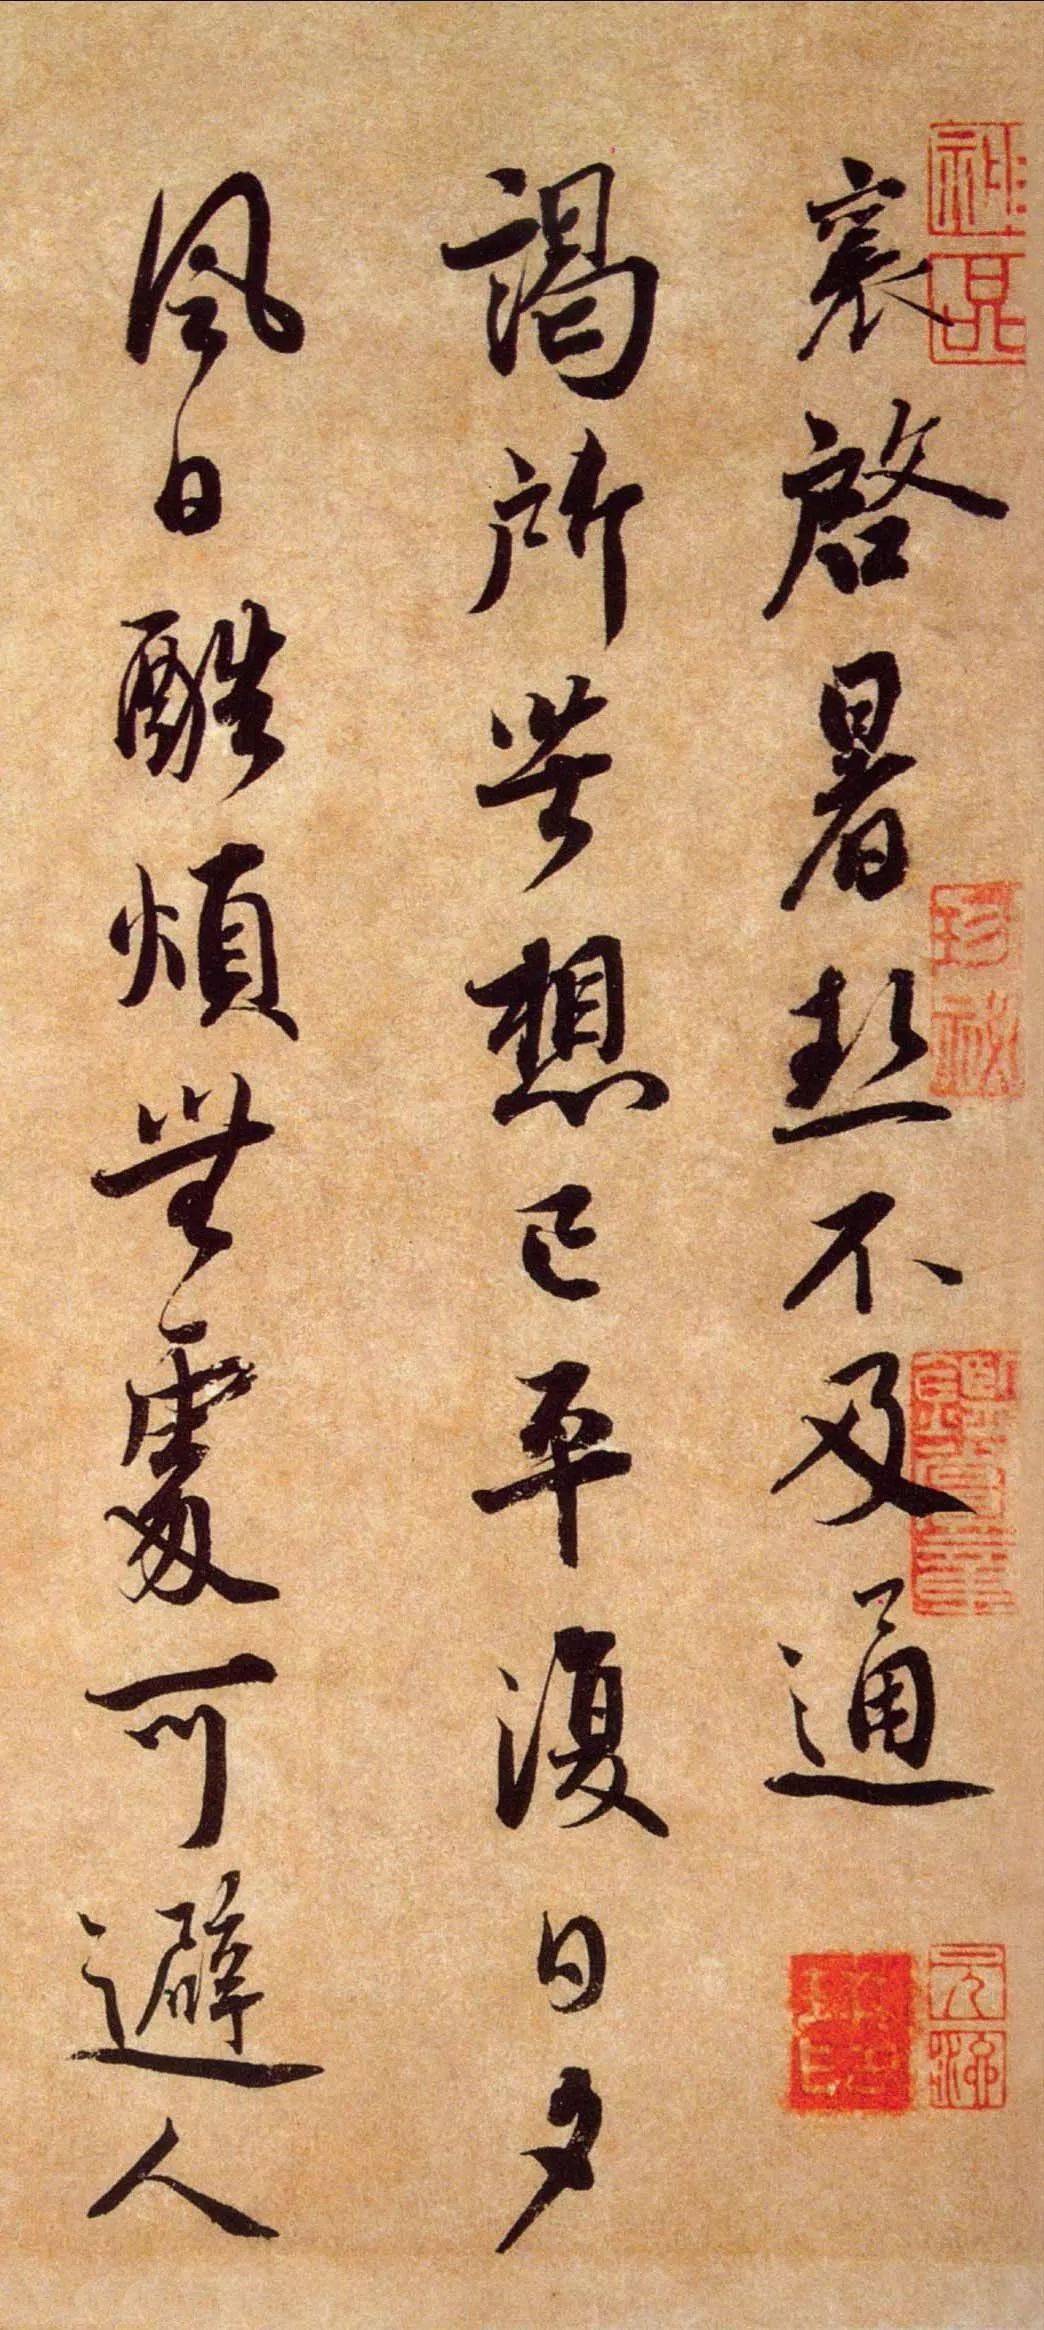 神品
珍秘
襄啓暑熱不及通
謁所苦想已平復日夕
風日酷煩無處可避人